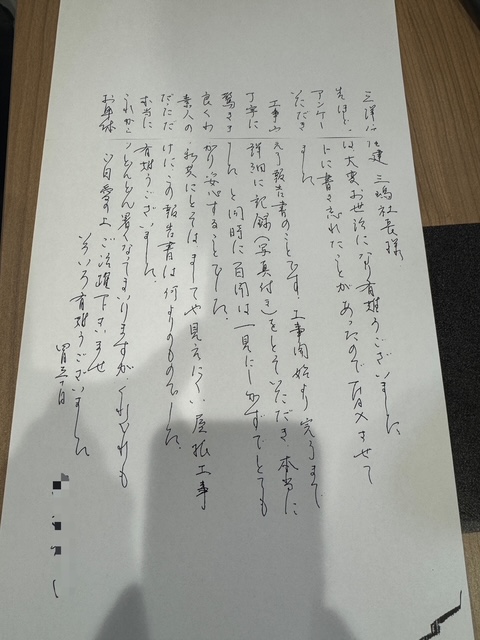 三洋住建 三嶋社長様
先ほどは大変お世話になり有難うございました
アンケートに書き忘れたことがあったのでFAXさせて
いただきました
工事完了報告書のことです。工事開始より完了まで
丁寧に詳細に記録(写真付き)をとっていただき本当に
驚きましたと同時に百聞は一見にしかずでとても
良くわかり安心することでした。
素人の私共にとってはまして見えにくい屋根工事
だっただけにこの報告書は何よりのものでした。
本当に有難うございました。
これからどんどん暑くなってまいりますがくれぐれも
お身体ご自愛の上ご活躍下さいませ
いろいろ有難うございました